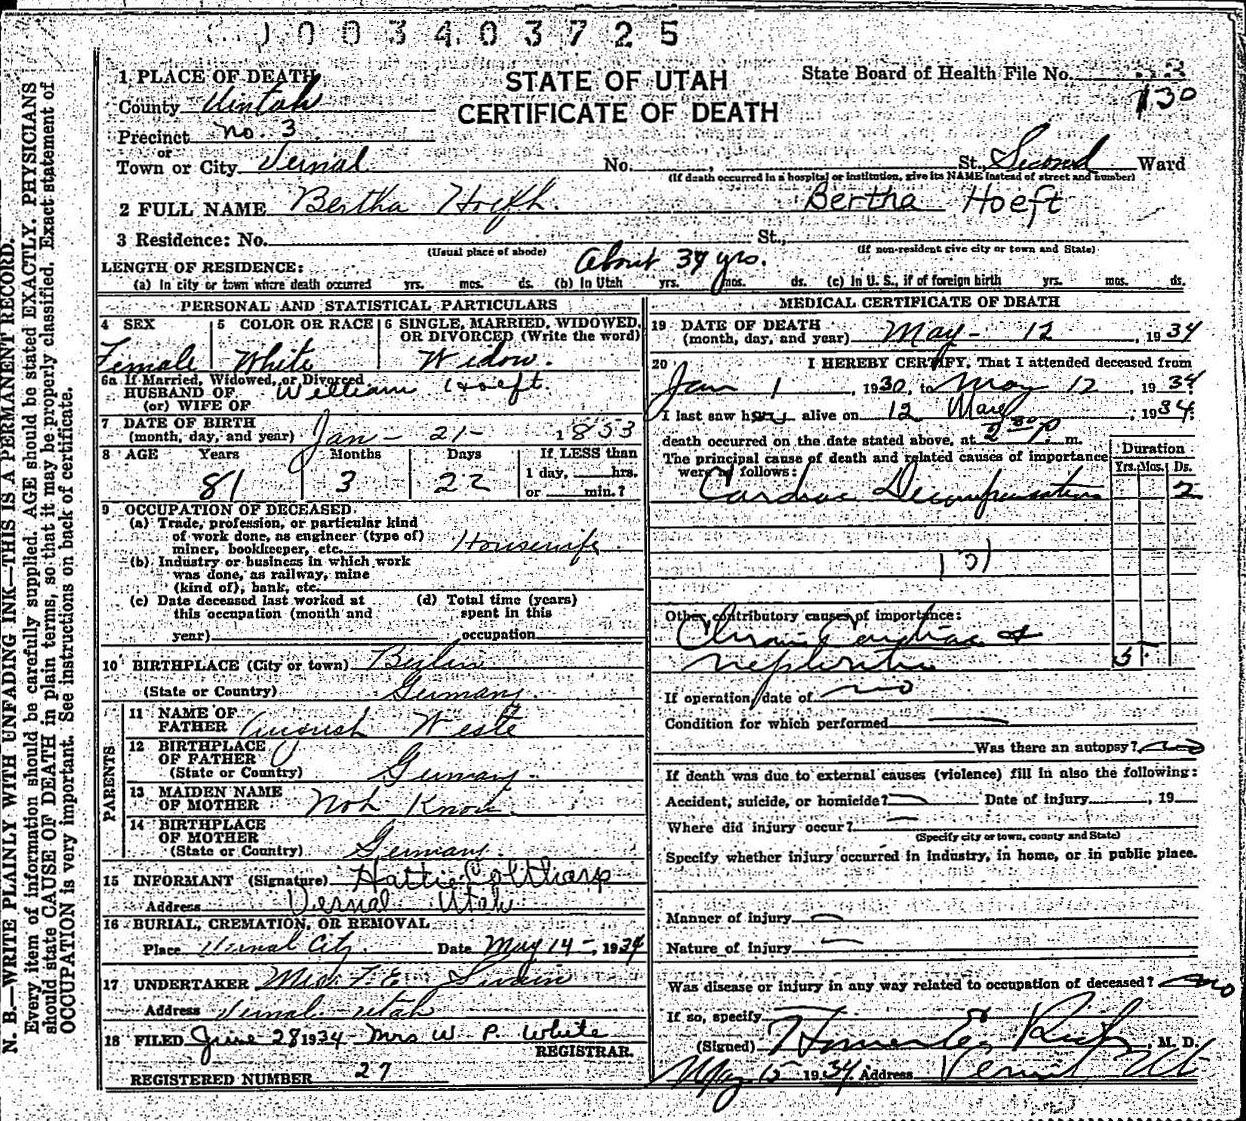 0 0 3 4 0 3 7 2 5
STATE OF UTAH
CERTIFICATE OF DEATH
State Board of Health File No.
130
1 PLACE OF DEATH
County Uintah
Precinct No. 3
or
Town or City Vernal No. St. Second Ward
(If death occurred in a hospital or institution, give its NAME instead of street and number)
2 FULL NAME Bertha Hoeft. Bertha Hoeft
3 Residence: No. St.,
(Usual place of abode) (If non-resident give city or town and State)
LENGTH OF RESIDENCE: About 34 yrs.
(a) In city or town where death occurred yrs. mos. ds. (b) In Utah yrs. mos. ds. (c) In U. S., if of foreign birth yrs. mos. ds.
PERSONAL AND STATISTICAL PARTICULARS
4 SEX Female
5 COLOR OR RACE White
6 SINGLE, MARRIED, WIDOWED, OR DIVORCED (Write the word) Widow.
6a If Married, Widowed, or Divorced
HUSBAND OF William Hoeft.
(or) WIFE OF
7 DATE OF BIRTH
(month, day, and year) Jan - 21 - 1853
8 AGE Years Months Days If LESS than
1 day, hrs.
81 3 22 or min.?
9 OCCUPATION OF DECEASED
(a) Trade, profession, or particular kind
of work done, as engineer (type of)
miner, bookkeeper, etc. Housewife
(b) Industry or business in which work
was done, as railway, mine
(kind of), bank, etc.
(c) Date deceased last worked at (d) Total time (years)
this occupation (month and spent in this
year) occupation
10 BIRTHPLACE (City or town) Berlin
(State or Country) Germany.
PARENTS
11 NAME OF
FATHER August Weste
12 BIRTHPLACE
OF FATHER
(State or Country) Germany.
13 MAIDEN NAME
OF MOTHER Not Know.
14 BIRTHPLACE
OF MOTHER
(State or Country) Germany.
15 INFORMANT (Signature) Hattie Coltharp
Address Vernal Utah
16 BURIAL, CREMATION, OR REMOVAL
Place Vernal City. Date May 14 -, 1934
17 UNDERTAKER Mrs. F. E. Swain
Address Vernal Utah
18 FILED June 28 1934 Mrs W. P. White
REGISTRAR.
REGISTERED NUMBER 27
MEDICAL CERTIFICATE OF DEATH
19 DATE OF DEATH
(month, day, and year) May - 12, 1934
20 I HEREBY CERTIFY, That I attended deceased from
Jan 1, 1930, to May 12, 1934
I last saw her alive on 12 May, 1934
death occurred on the date stated above, at 2 30 p. m.
The principal cause of death and related causes of importance
were as follows:
Duration
Yrs. Mos. Ds.
Cardiac Decompensation 2
131
Other contributory causes of importance:
Chronic Cardiac &
nephritis 5
If operation, date of no
Condition for which performed
Was there an autopsy? no
If death was due to external causes (violence) fill in also the following:
Accident, suicide, or homicide? Date of injury , 19
Where did injury occur?
(Specify city or town, county and State)
Specify whether injury occurred in industry, in home, or in public place.
Manner of injury
Nature of injury
Was disease or injury in any way related to occupation of deceased? no
If so, specify
(Signed) Homer E. Rich, M. D.
May 15 1934 Address Vernal, Ut
N. B.—WRITE PLAINLY WITH UNFADING INK—THIS IS A PERMANENT RECORD.
Every item of information should be carefully supplied. AGE should be stated EXACTLY. PHYSICIANS
should state CAUSE OF DEATH in plain terms, so that it may be properly classified. Exact statement of
OCCUPATION is very important. See instructions on back of certificate.